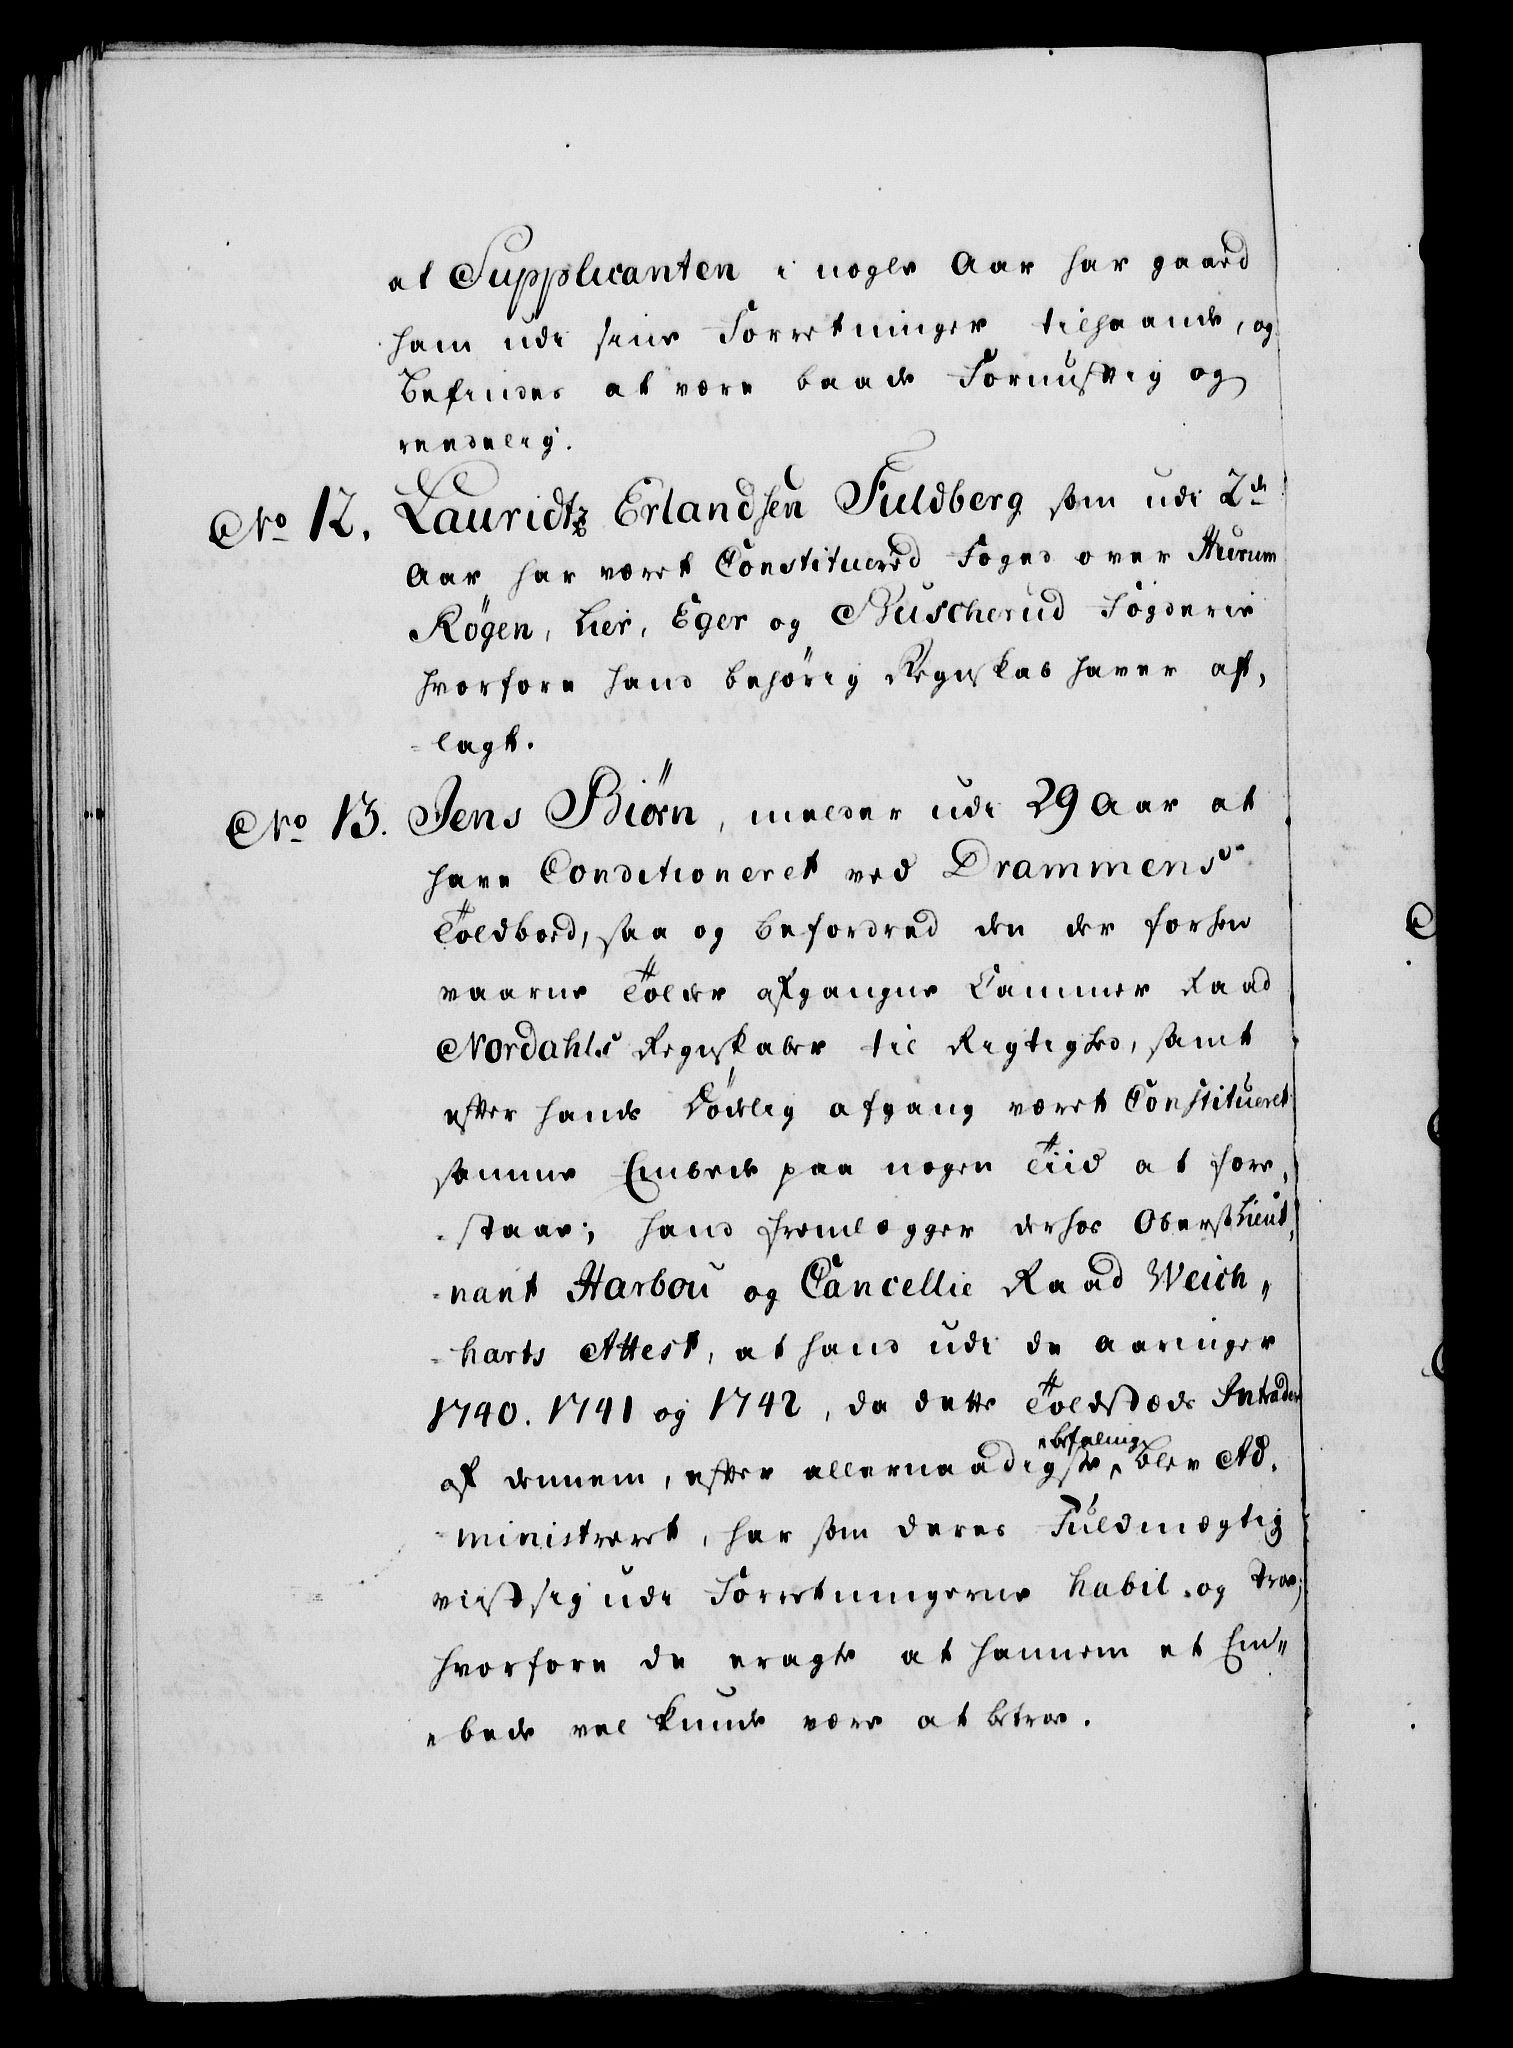 at Supplicanten i nogle Aar har gaaed
ham udi sine Forretninger tilhaande, og
befindes at være baade Fornuftig og
reedelig.
No 12. Lauridtz Erlandsen Fuldberg som udi 2de
Aar har været Constituered Foged over Hurum
Røgen, Lier, Eger og Buscherud Fogderie
hvorfore hand behørig Regnskab haver af,
-lagt.
No 13. Jens Biørn, melder udi 29 Aar at
have Conditioneret ved Drammens
Toldboed, saa og befordred den der forhen
værende Tolder afgangne Cammer Raad
Nordahls Regnskaber til Rigtighed, samt
efter hands Dødelig afgang været Constitueret
samme Embede paa nogen Tiid at fore,
-staae; hand fremlægger derhos Oberstlieut,
-nant Harbou og Cancellie Raad Weich,,
-harts Attest, at hand udi de Aaringer
1740. 1741 og 1742, da dette Toldstæds Intrader
af dennem, efter allernaadigste befaling blev Ad,
-ministreret, har som deres Fuldmægtig
viist sig udi Forretningerne habil og troe;
hvorfore de eragte at hannem et Em,,
,,bede vel kunde være at betroe.